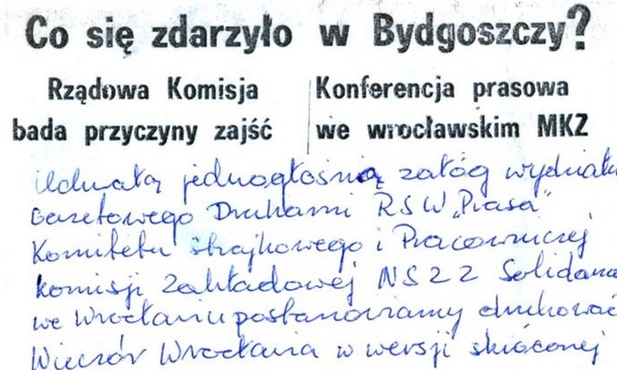 Co się zdarzyło w Bydgoszczy?
Rządowa Komisja
bada przyczyny zajść
Konferencja prasowa
we wrocławskim MKZ
Uchwałą jednogłośną załóg wydziału
Gazetowego Drukarni RSW „Prasa"
Komitetu strajkowego i Pracowniczej
komisji Zakładowej NSZZ Solidarno
we Wrocławiu postanawiamy drukować
Wieczór Wrocławia w wersji skróconej